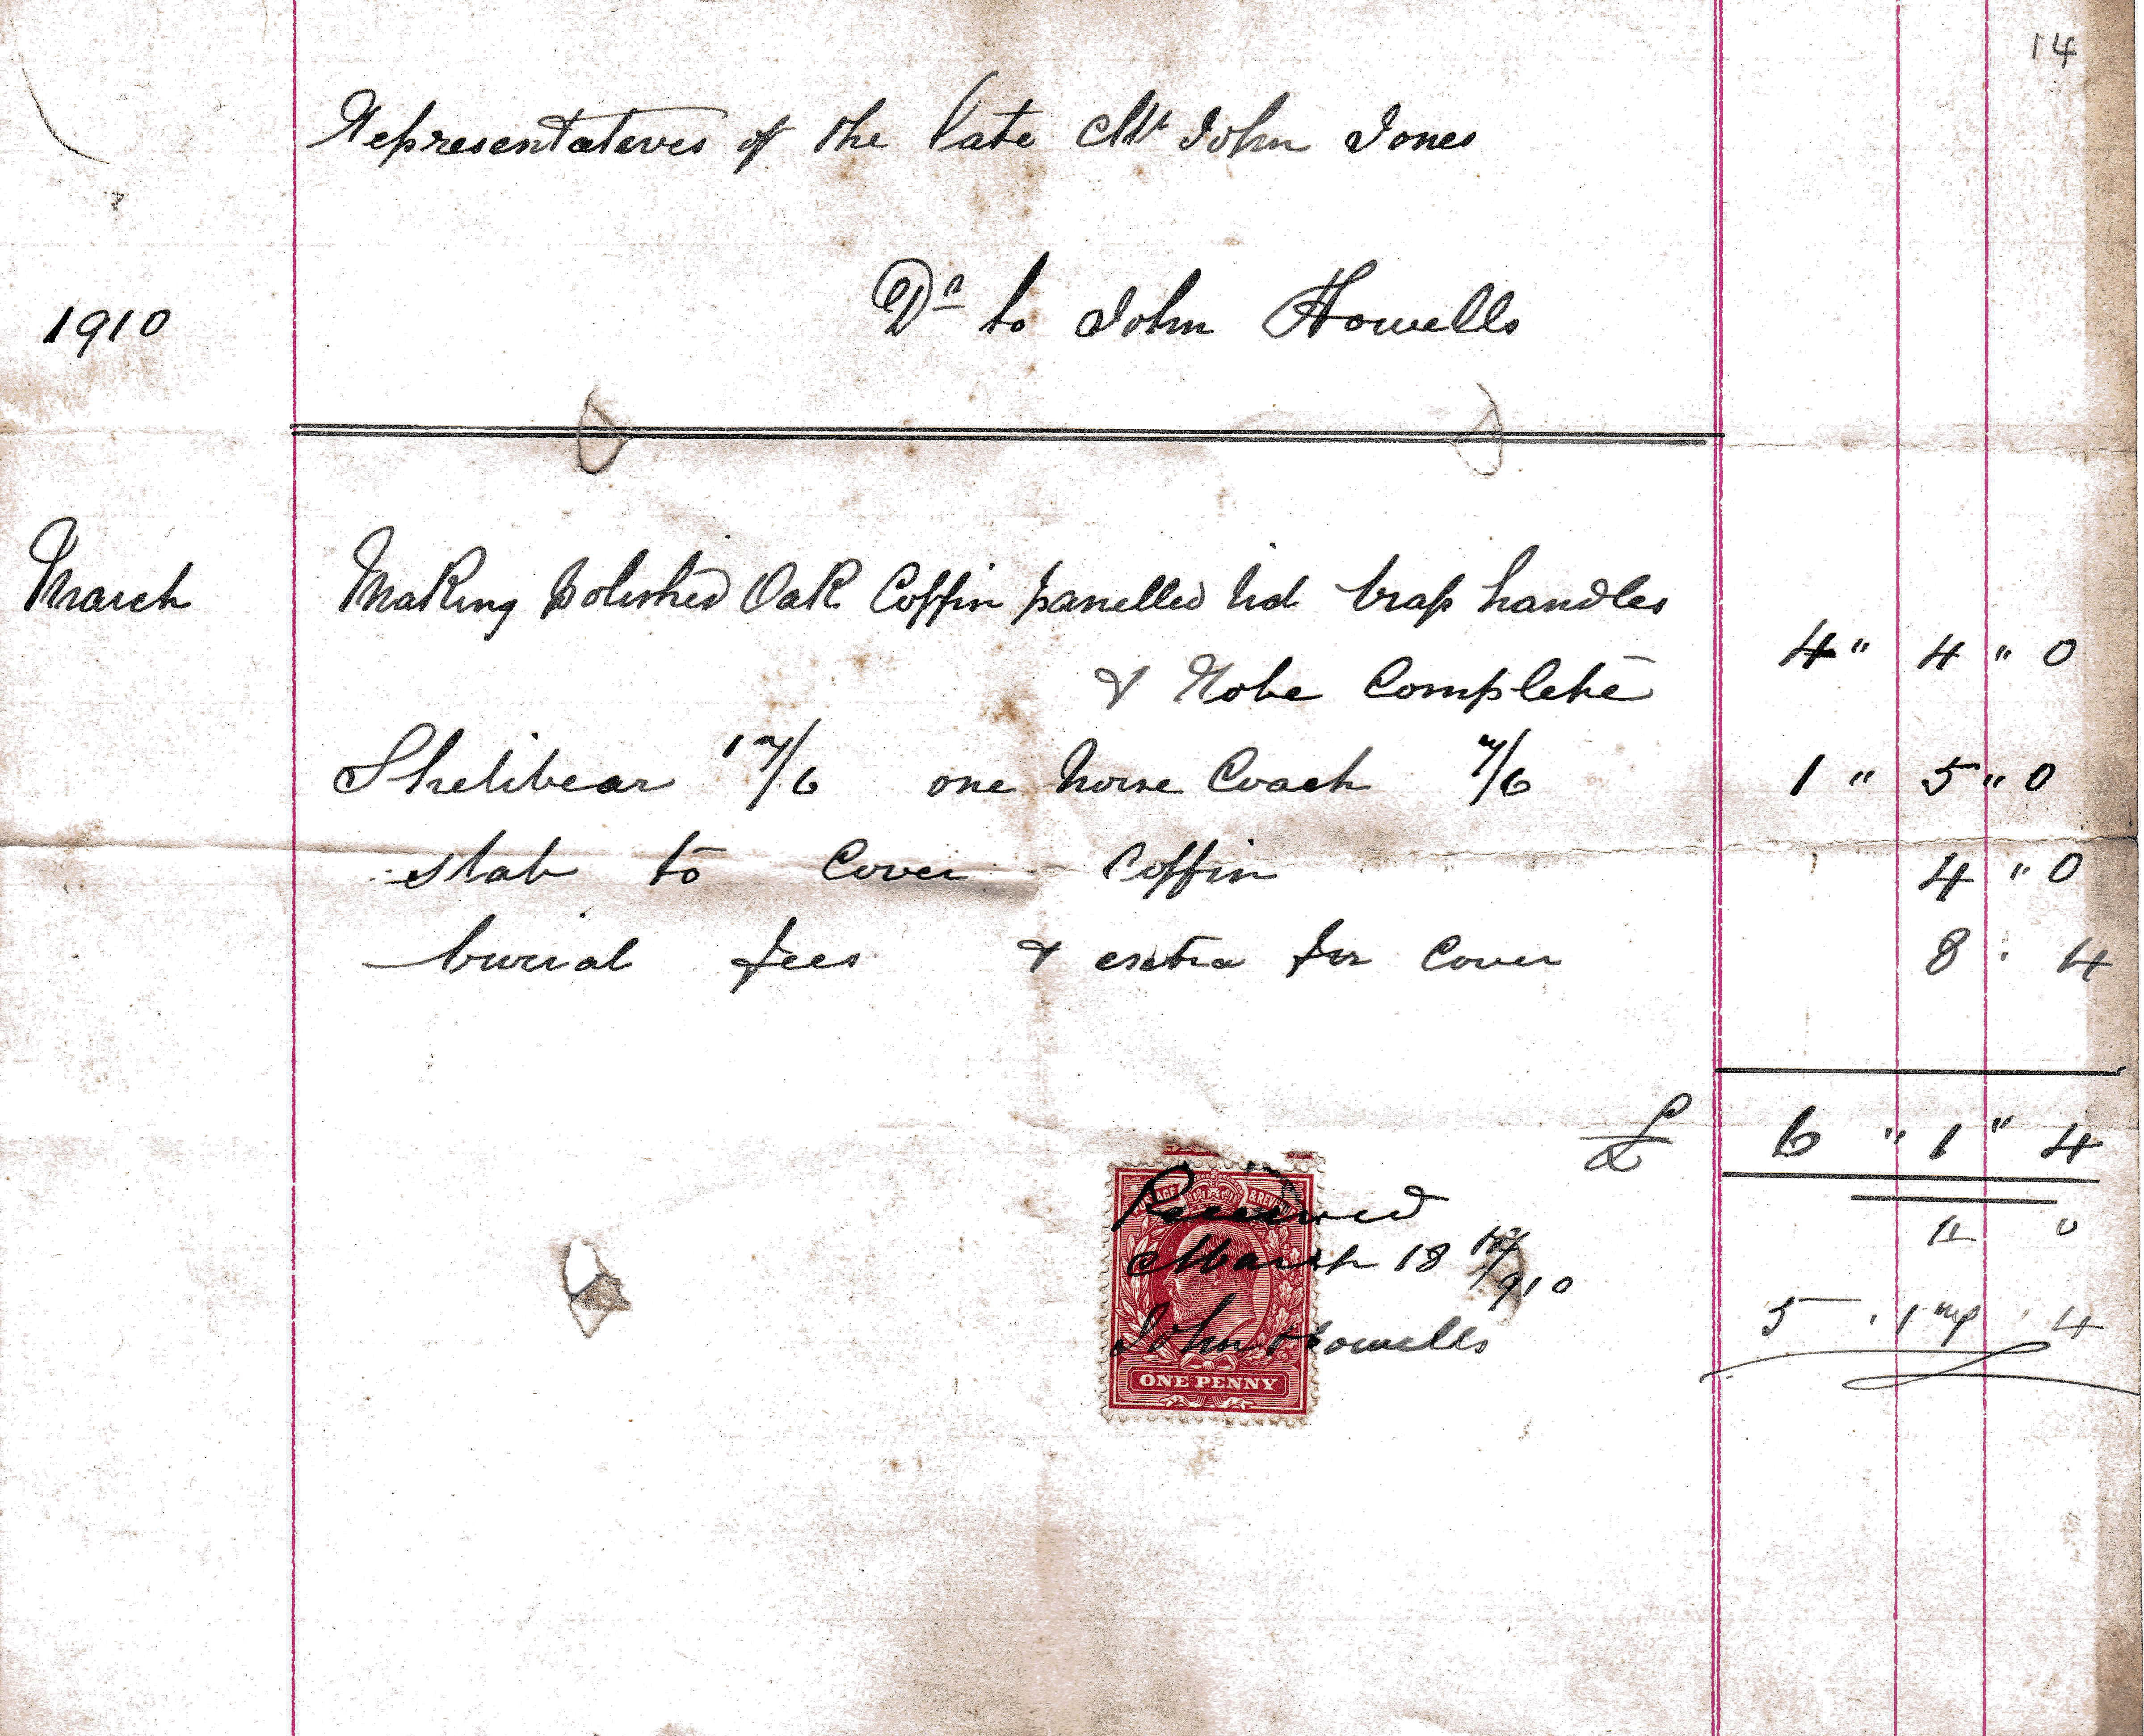 14
Representatives of the late Mr John Jones
1910 Dr to John Howells
March Making polished Oak Coffin panelled lid brass handles
& Robe Complete 4 " 4 " 0
Shelibear 17/6 one horse Coach 7/6 1 " 5 " 0
slab to Cover Coffin 4 " 0
burial fees & extra for Cover 8 . 4
£ 6 " 1 " 4
POSTAGE & REVENUE
Received
March 18th/910
John Howells
ONE PENNY
5 . 17 . 4